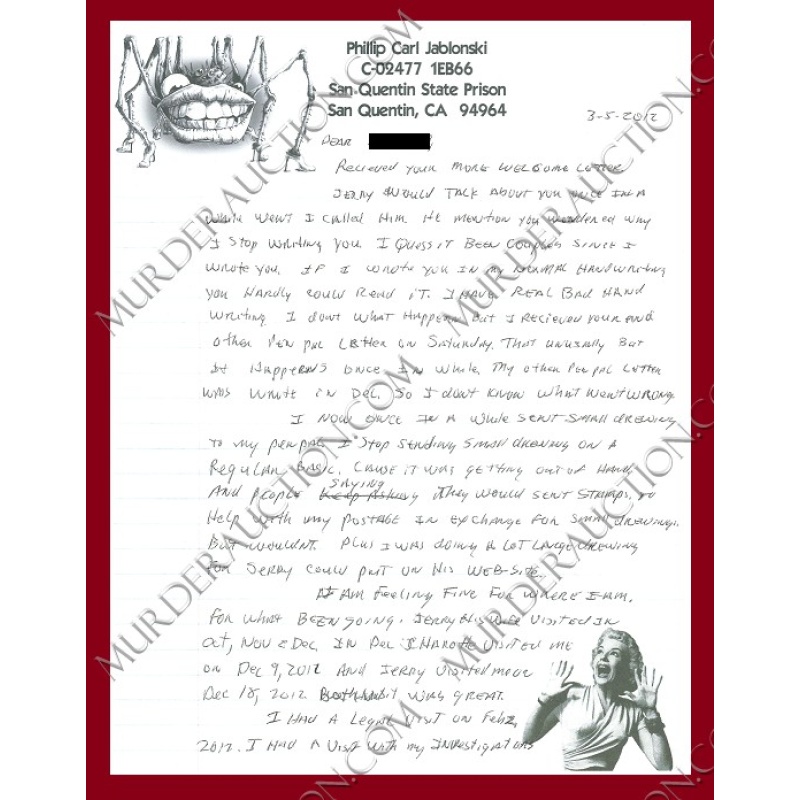 Phillip Carl Jablonski
C-02477 1EB66
San Quentin State Prison
San Quentin, CA 94964
3-5-2012
DEAR
RECIEVED YOUR MORE WELCOME LETTER
JERRY WOULD TALK ABOUT YOU ONCE IN A
WHILE WENT I CALLED HIM HE MENTION YOU WONDERED WHY
I STOP WRITING YOU. I QUESS IT BEEN COUPLES SINCE I
WROTE YOU. IF I WROTE YOU IN MY NORMAL HANDWRITING
YOU HARDLY COULD READ IT. I HAVE REAL BAD HAND
WRITING I DONT WHAT HAPPEN BUT I RECIEVED YOUR AND
OTHER PEN PAL LETTER ON SATURDAY. THAT UNUSUALLY BUT
IT HAPPENS ONCE IN WHILE. MY OTHER PEN PAL LETTER
WAS WROTE IN DEC. SO I DON'T KNOW WHAT WENT WRONG.
I NOW ONCE IN A WHILE SENT SMALL DREWING
TO MY PENPAL. I STOP SENDING SMALL DREWING ON A
REGULAR BASIC. CAUSE IT WAS GETTING OUT OF HAND
AND PEOPLE SAYING THEY WOULD SENT STAMPS TO
HELP WITH MY POSTAGE IN EXCHANGE FOR SMALL DREWINGS.
BUT WOULDN'T. PLUS I WAS DOING A LOT LARGE DREWING
FOR JERRY COULD PUT ON HIS WEB-SITE.
I AM FEELING FINE FOR WHERE I AM.
FOR WHAT BEEN GOING. JERRY HIS WIFE VISITED IN
OCT, NOV & DEC. IN DEC VISITED ME
ON DEC 9, 2012 AND JERRY VISITED ME ON
DEC 18, 2012 VISIT WAS GREAT.
I HAD A LEGAL VISIT ON FEB 2,
2012. I HAD A VISIT WITH MY INVESTIGATIONS
MURDERAUCTION.COM